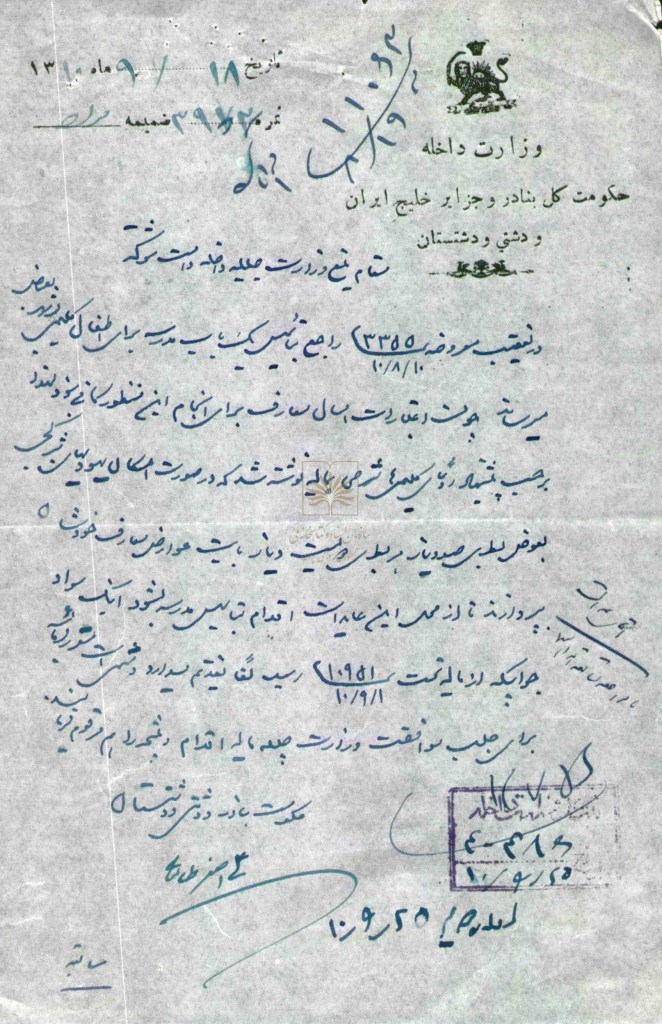 تاریخ ۱۸ / ۹ ماه ۱۳۱۰
نمره ۳۹۷۳ ضمیمه
۱۱۰۶۳
وزارت داخله
حکومت کل بنادر و جزایر خلیج ایران
و دشتی و دشتستان
مقام منیع وزارت جلیله داخله دامت شوکته
در تعقیب معروضه ۳۳۵۵ ۱۰/۸/۱۰ راجع بتأسیس یکباب مدرسه برای اطفال کلیمی بوشهر بعرض
میرساند چون اعتبارات امسال معارف برای انجام این منظور کافی نبود لهذا
برحسب پیشنهاد رؤسای کلیمی‌ها شرحی بمالیه نوشته شد که در صورت امکال یهودیهای
بعوض بطری صد دینار هر بطری دویست دینار بابت عوارض معارف خودشان
بپردازند تا از محل این عایدات اقدام بتأسیس مدرسه بشود اینک سواد
جوابیکه از مالیه تحت ۱۰۹۵۱ ۱۰/۹/۱ رسیده لفا تقدیم میدارد
برای جلب موافقت وزارت جلیله مالیه اقدام و نتیجه را مرقوم فرمایند
حکومت بنادر و دشتی و دشتستان
۱۰/۹/۲۵
۲۵ / ۹ / ۱۰